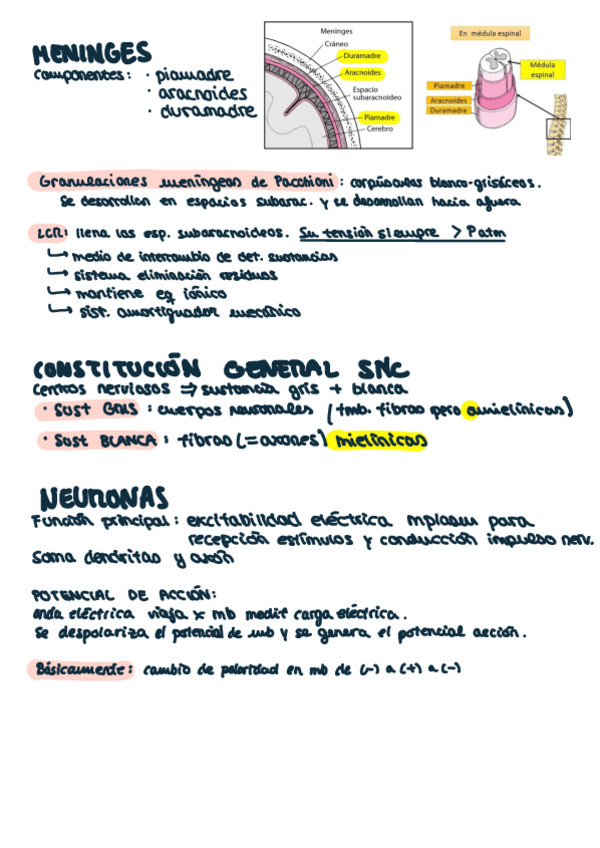 MENINGES
Componentes: · piamadre
· aracnoides
· duramadre
Meninges
Cráneo
Duramadre
Aracnoides
Espacio
subaracnoideo
Piamadre
Cerebro
En médula espinal
Médula
espinal
Piamadre
Aracnoides
Duramadre
Granulaciones meníngeas de Pacchioni: corpúsculos blanco-grisáceos.
Se desarrollan en espacios subarac. y se desarrollan hacia afuera
LCR: llena los esp. subaracnoideos. Su tensión siempre > Patm
↳ medio de intercambio de det. sustancias
↳ sistema eliminación residuos
↳ mantiene eq iónico
↳ sist. amortiguador mecánico
CONSTITUCIÓN GENERAL SNC
Centros nerviosos ⇒ sustancia gris + blanca
· Sust GRIS: cuerpos neuronales (tmb. fibras pero amielínicas)
· Sust BLANCA: fibras (= axones) mielínicas
NEURONAS
Función principal: excitabilidad eléctrica mplasm para
recepción estímulos y conducción impulso nerv.
Soma dendritas y axón
POTENCIAL DE ACCIÓN:
onda eléctrica viaja x mb modif carga eléctrica.
Se despolariza el potencial de mb y se genera el potencial acción.
Básicamente: cambio de polaridad en mb de (-) a (+) a (-)